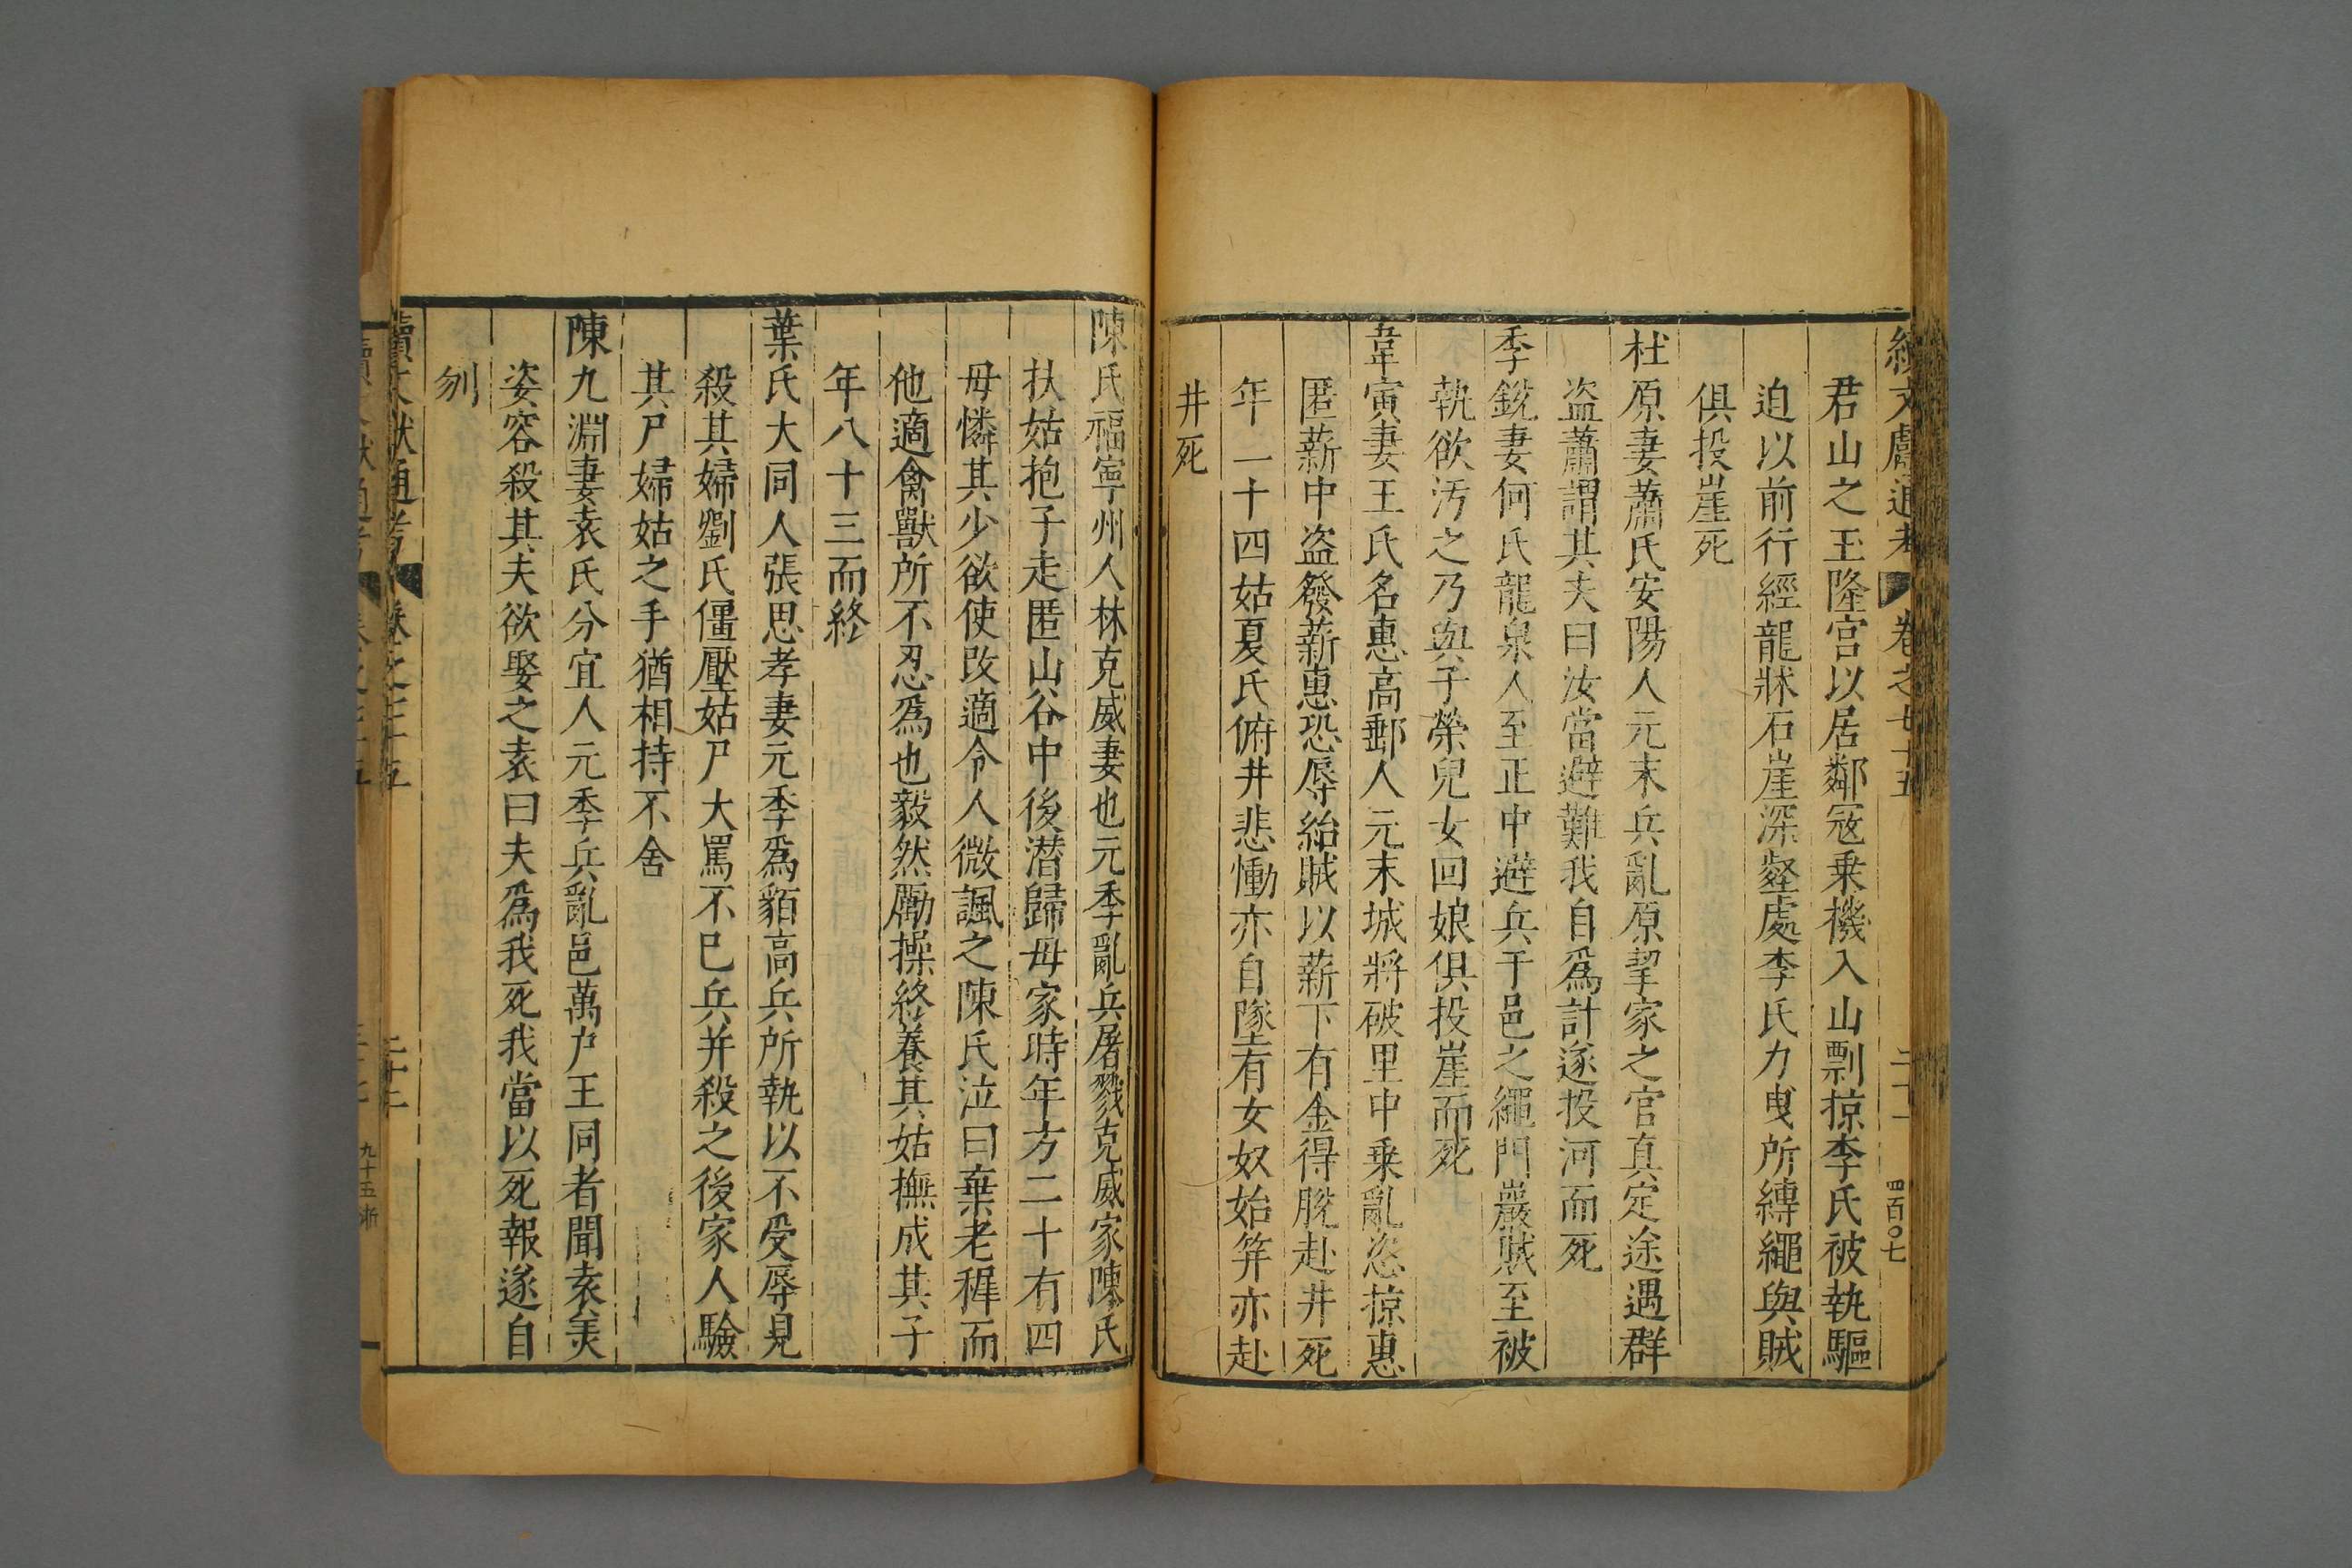 續文獻通考 卷之七十五 二十一 四百〇七
君山之玉隆宮以居鄰寇乗機入山剽掠李氏被執驅
迫以前行經龍牀石崖深壑處李氏力曳所縛繩與賊
俱投崖死
杜原妻蕭氏安陽人元末兵亂原挈家之官真定途遇群
盗蕭謂其夫曰汝當避難我自爲計遂投河而死
季銳妻何氏龍泉人至正中避兵于邑之繩門巖賊至被
執欲汚之乃與子榮兒女回娘俱投崖而死
韋寅妻王氏名惠高郵人元末城將破里中乗亂恣掠惠
匿薪中盗發薪惠恐辱紿賊以薪下有金得脫赴井死
年二十四姑夏氏俯井悲慟亦自墜有女奴始筓亦赴
井死
陳氏福寧州人林克威妻也元季亂兵屠戮克威家陳氏
扶姑抱子走匿山谷中後潜歸母家時年方二十有四
母憐其少欲使改適令人微諷之陳氏泣曰棄老穉而
他適禽獸所不忍爲也毅然勵操終養其姑撫成其子
年八十三而終
葉氏大同人張思孝妻元季爲貊高兵所執以不受辱見
殺其婦劉氏僵壓姑尸大罵不已兵并殺之後家人驗
其尸婦姑之手猶相持不舍
陳九淵妻袁氏分宜人元季兵亂邑萬户王同者聞袁美
姿容殺其夫欲娶之袁曰夫爲我死我當以死報遂自
刎
續文獻通考 卷之七十五 二十二
九十五